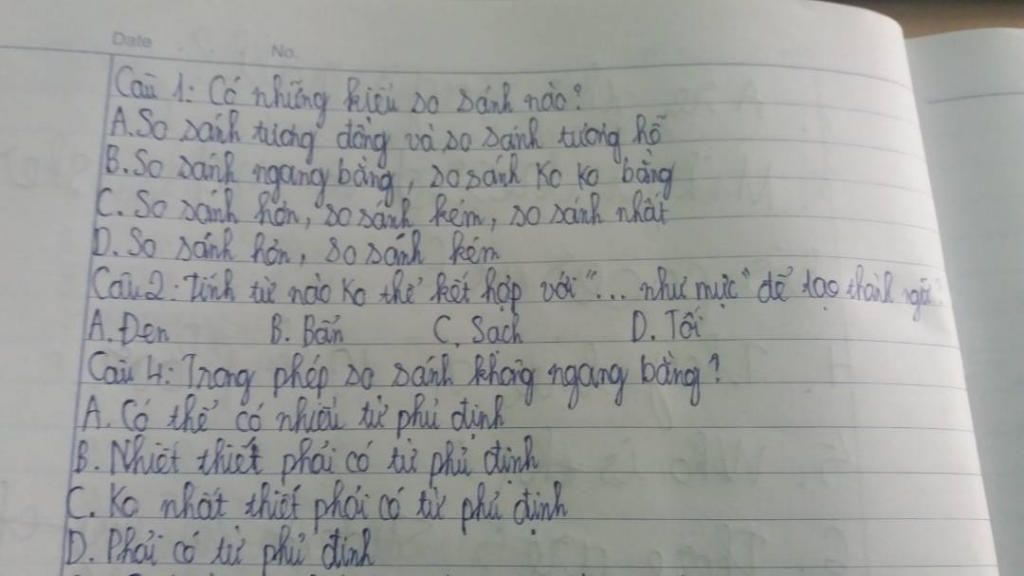 Date No.
Câu 1: Có những kiểu so sánh nào?
A. So sánh tương đồng và so sánh tương hỗ
B. So sánh ngang bằng, so sánh ko ko bằng
C. So sánh hơn, so sánh kém, so sánh nhất
D. So sánh hơn, so sánh kém
Câu 2: Tính từ nào ko thể kết hợp với "... như mực" để tạo thành ngữ?
A. Đen B. Bẩn C. Sạch D. Tối
Câu 4: Trong phép so sánh không ngang bằng?
A. Có thể có nhiều từ phủ định
B. Nhiết thiết phải có từ phủ định
C. Ko nhất thiết phải có từ phủ định
D. Phải có từ phủ định